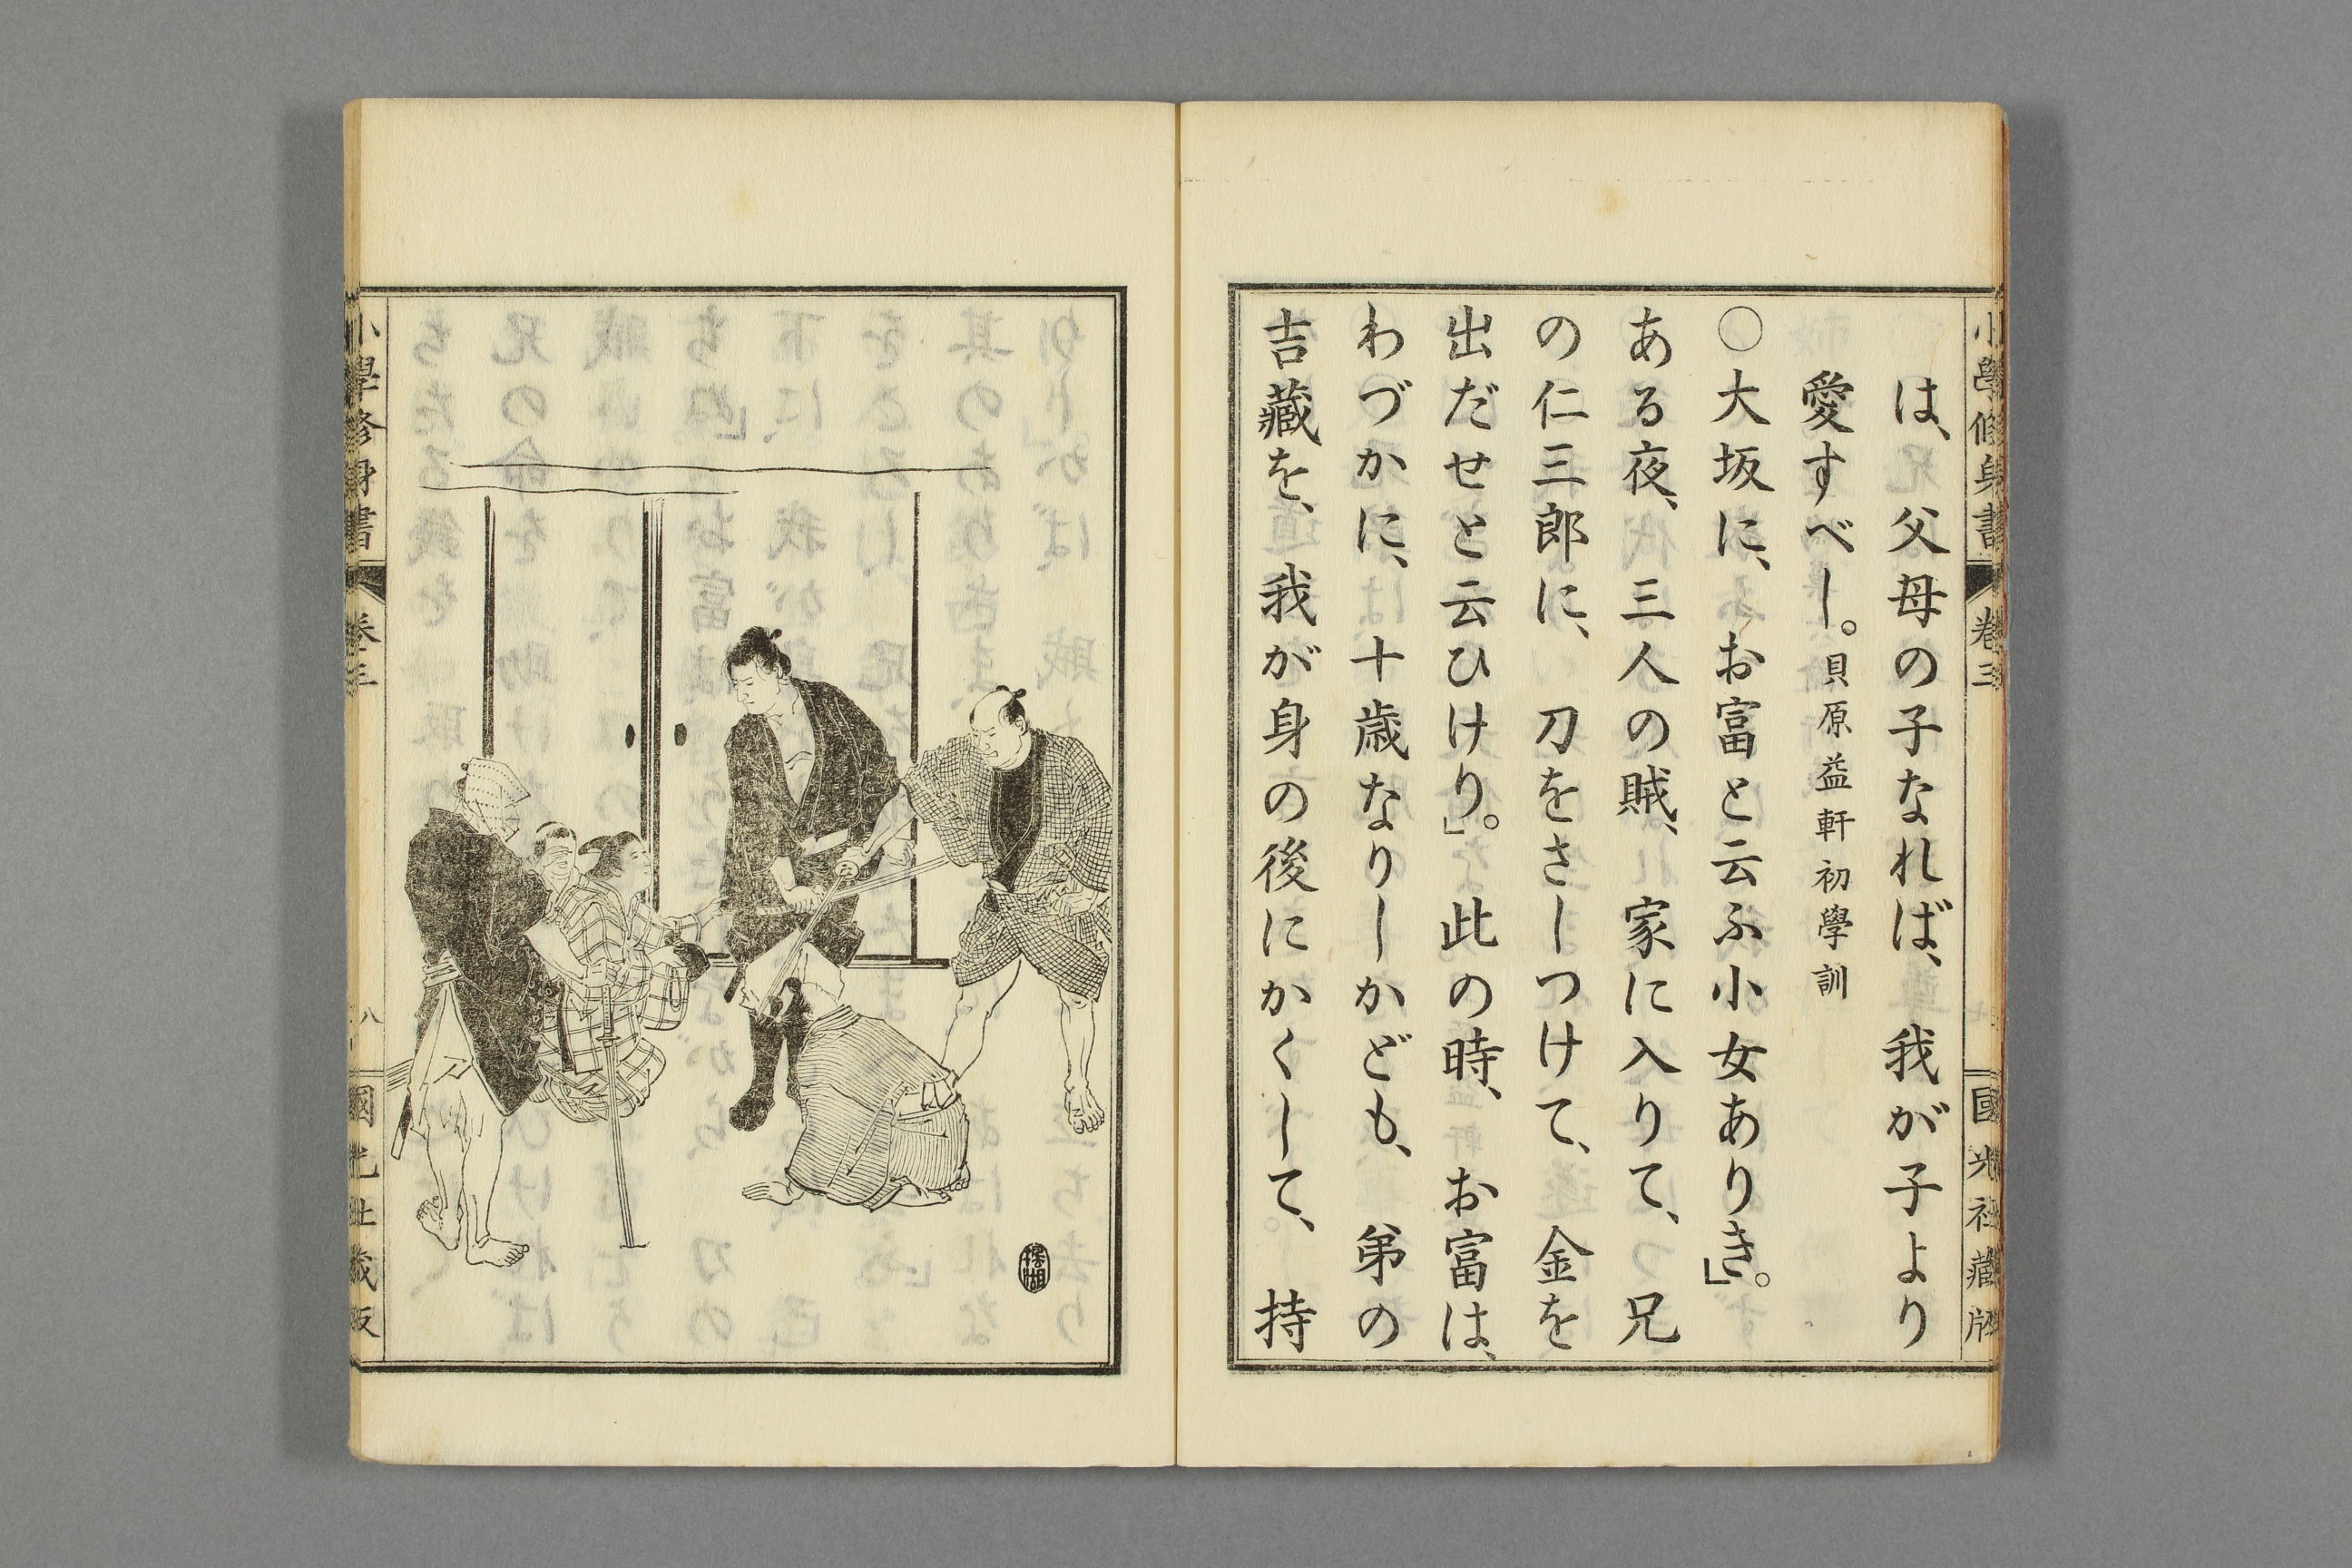 小學修身書 卷三 國光社藏版
は、父母の子なれば、我が子より
愛すべし。貝原益軒初學訓
○大坂に、お富と云ふ小女ありき。」
ある夜、三人の賊、家に入りて、兄
の仁三郎に、刀をさしつけて、金を
出だせと云ひけり。」此の時、お富は、
わづかに、十歳なりしかども、弟の
吉藏を、我が身の後にかくして、持
小學修身書 卷三 八 國光社藏版